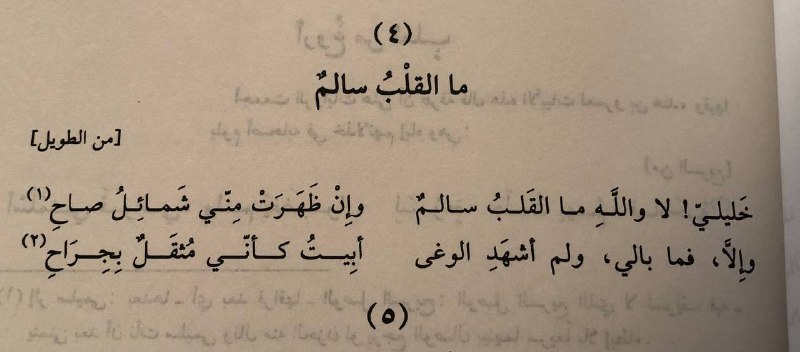 (٤)
ما القلْبُ سالمٌ
[من الطويل]
خَليليّ! لا واللَّهِ ما القَلبُ سالمٌ وإنْ ظَهَرَتْ مِنّي شَمائِلُ صاحِ(١)
وإلاَّ، فما بالي، ولم أشهَدِ الوغى أبِيتُ كأنّي مُثقَلٌ بِجِرَاحِ(٢)
(٥)